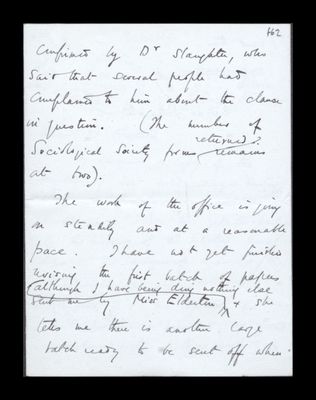 662
confirmed by Dr Slaughter, who
said that several people had
complained to him about the clause
in question. (The number of
returned?
Sociological Society forms remains
at two).
The work of the office is going
on steadily and at a reasonable
pace. I have not yet finished
revising the first batch of papers
(although I have being doing nothing else
sent me by Miss Elderton, & she
tells me there is another large
batch ready to be sent off when